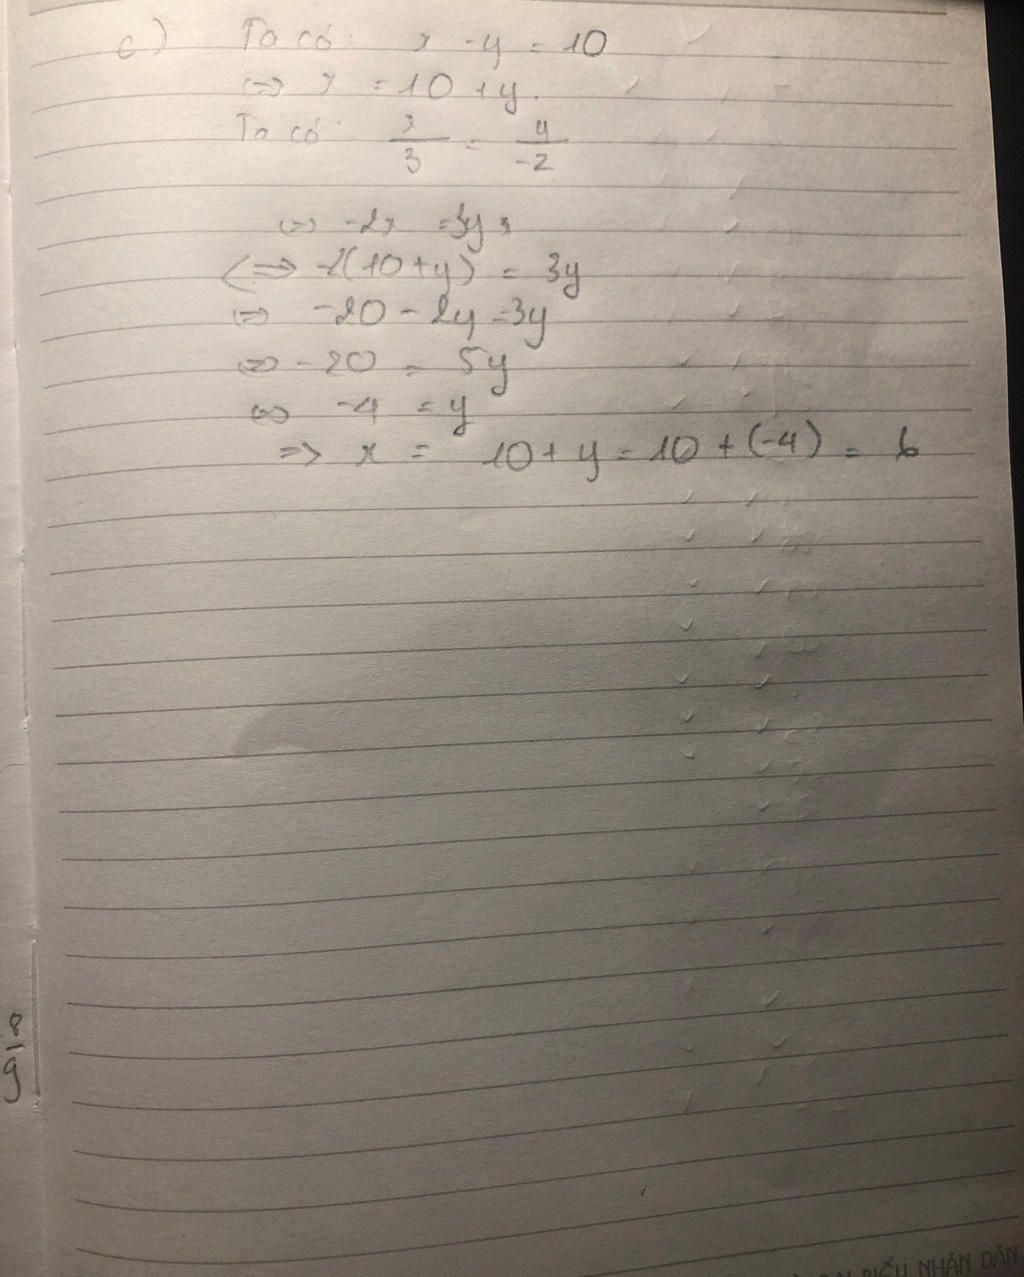 c) Ta có: x - y = 10
<=> x = 10 + y.
Ta có: x/3 = y/-2
<=> -2x = 3y
<=> -2(10+y) = 3y
<=> -20 - 2y = 3y
<=> -20 = 5y
<=> -4 = y
=> x = 10 + y = 10 + (-4) = 6
8
9
BIỂU NHÂN DÂN